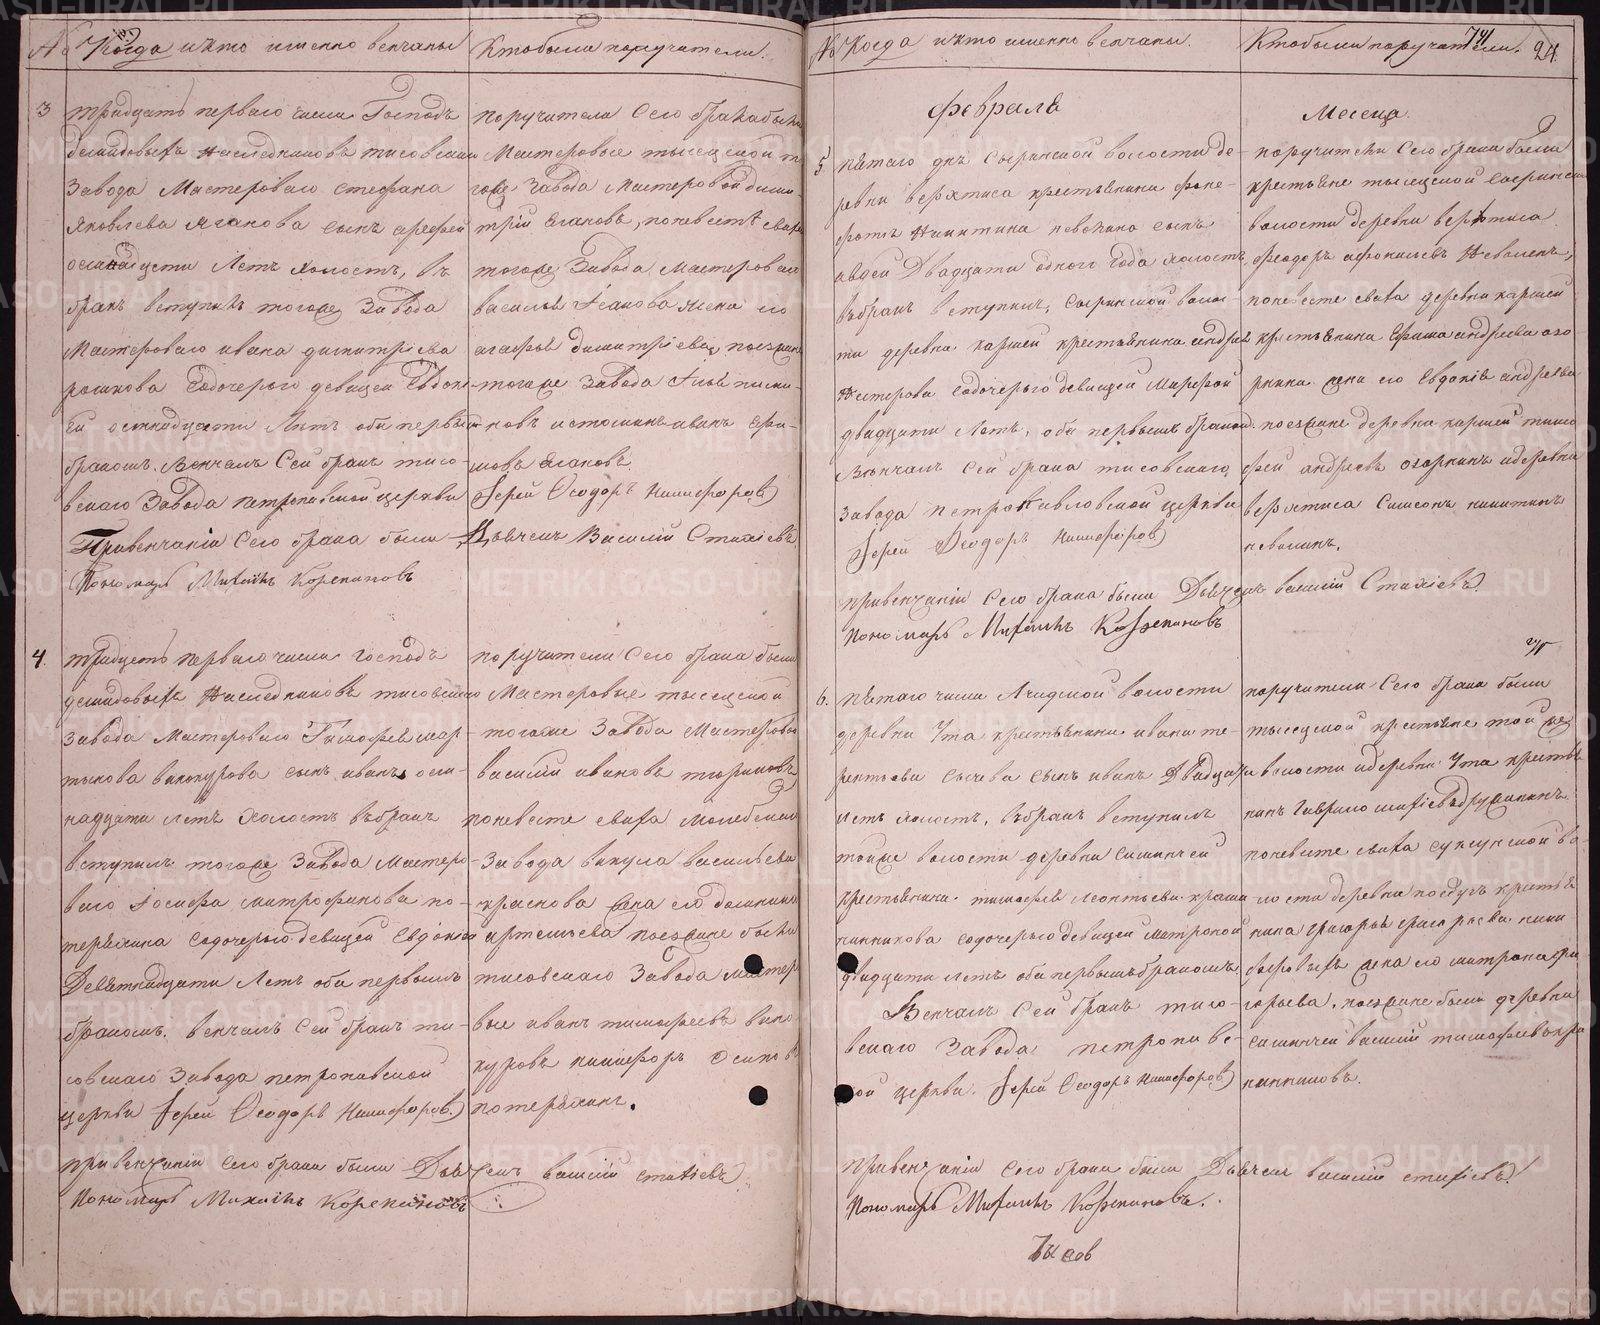 № Когда и кто именно венчаны
Кто были поручатели.
3 тридцать перваго числа Господъ
демидовыхъ Наследниковъ тисовскаго
Завода Мастероваго стефана
Яковлева Яганова сынъ
осмнадцети Летъ холостъ, въ
бракъ вступилъ тогоже Завода
Мастероваго ивана димитріева
рошкова Содочерью девицей Евдок-
ей осмнадцати Летъ оба первымъ
бракомъ. Венчалъ Сей бракъ тисо-
вскаго Завода петропавской церкви
Привенчаніи Сего брака были
Пономарь Михаилъ Корепановъ
поручатели Сего брака были
Мастеровые тисовской
гоже Завода Мастеровой дими
трій Ягановъ, поневесте сваха
тогоже Завода Мастероваго
василья Яганова Жена его
агафья димитріева, поезжане
тогоже Завода
ковъ иванъ ефи-
мовъ Ягановъ
Іерей Феодоръ Никифоровъ
Дьячекъ Василій Стахіевъ
4. тридцеть перваго числа господъ
демидовыхъ Наследниковъ тисовскаго
Завода Мастероваго Тимофея мар-
тынова винокурова сынъ иванъ осм-
надцати летъ Холостъ въбракъ
вступилъ тогоже Завода Мастеро-
ваго Іосифа митрофанова по-
теряхина Содочерью девицей Евдокіей
Девятнадцати Летъ оба первымъ
бракомъ. венчалъ Сей бракъ ти-
совскаго Завода петропавской
церкви Іерей Феодоръ Никифоровъ
привенчаніи Сего брака были
Пономарь Михаилъ Корепановъ
поручатели Сего брака были
Мастеровые тысецской
тогоже Завода Мастеровой
василій ивановъ тюриковъ
поневесте сваха Молебскаго
Завода викула васильева
краснова жена его домника
артемьева поезжане были
тисовскаго Завода мастеро
вые иванъ тимофеевъ вино
куровъ никифоръ осиповъ
потеряхинъ.
Дьячекъ василій стахіевъ
№ Когда и кто именно венчаны.
Кто были поручатели.
74
24.
февраля
Месеца.
5 пятаго дня Сыринской волости де-
ревни верхтиса крестьянина
Никитина неволина сынъ
авдей Двадцати одного года холостъ,
въбракъ вступилъ, Сыринской волос-
ти деревни каршей крестьянина андрея
Нестерова Содочерью девицей Марфой
двадцати Летъ, оба первымъ бракомъ.
Венчалъ Сей брака тисовскаго
Завода петропавловской церкви
Іерей Феодоръ Никифоровъ
привенчаніи Сего брака были Дьячекъ василій Стахіевъ
Пономарь Михаилъ Корепановъ
поручатели Сего брака были
крестьяне тысецской Сыринской
волости деревни верхтиса
феодоръ афонасьевъ Неволинъ,
поневесте сваха деревни каршей
крестьянина Ефима андреева озо-
рнина жена его Евдокія андреева
поезжане деревни каршей тимо
фей андреевъ озорнинъ идеревни
верхтиса Симеонъ никитинъ
неволинъ.
6. пятаго числа Ачидской волости
деревни Ута крестьянина ивана те-
рентьева сычева Сынъ иванъ Двадцати
летъ холостъ, въбракъ вступилъ
тойже волости деревни симинчей
крестьянина тимофея леонтьева краши
нинникова содочерью девицей матроной
двадцати летъ оба первымъ бракомъ.
Венчалъ Сей бракъ тисо-
вскаго Завода петропавс-
кой церкви. Іерей Феодоръ Никифоровъ
привенчаніи Сего брака были Дьячекъ василій стахіевъ
Пономарь Михаилъ Корепановъ.
поручатели Сего брака были
тысецской крестьяне той же
волости идеревни Ута крестья
нинъ Гаврило
поневесте сваха суксунской во-
лости деревни поедугъ крестья
нина григорья григорьева ники
форовыхъ жена его матрона гри
горьева, поезжане были деревни
симинчей василій тимофеевъ кра
нинниковъ.